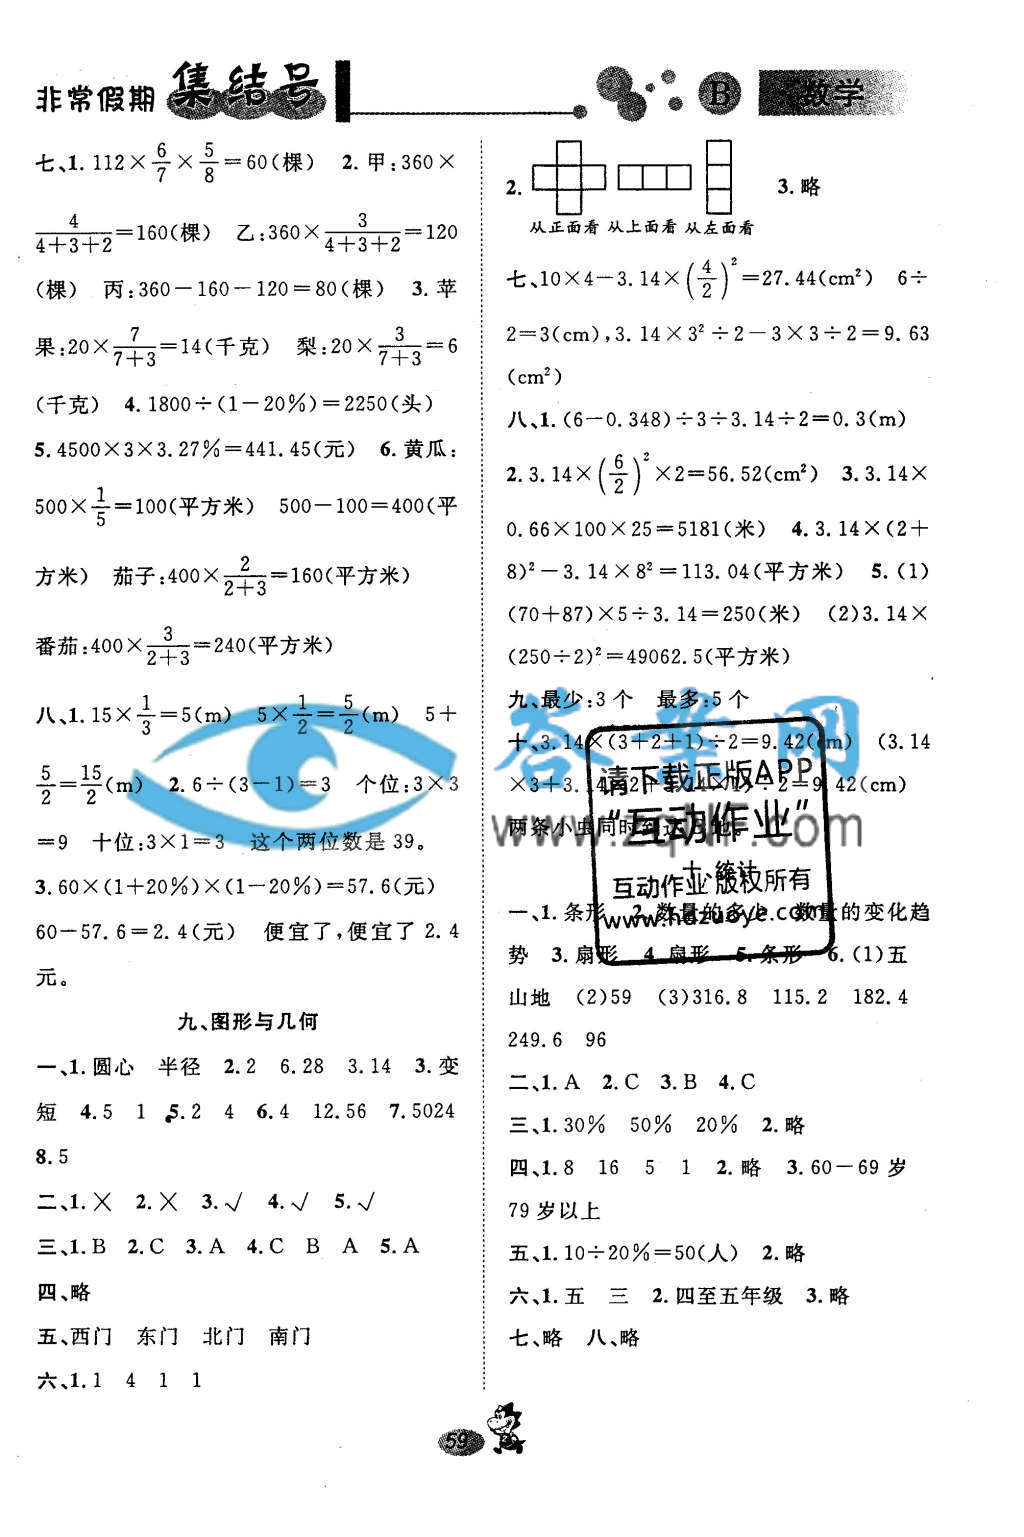 非常假期 集结号
B 数学
七、1. 112×6/7×5/8=60(棵) 2. 甲:360×
4/(4+3+2)=160(棵) 乙:360×3/(4+3+2)=120
(棵) 丙:360-160-120=80(棵) 3. 苹
果:20×7/(7+3)=14(千克) 梨:20×3/(7+3)=6
(千克) 4. 1800÷(1-20%)=2250(头)
5. 4500×3×3.27%=441.45(元) 6. 黄瓜:
500×1/5=100(平方米) 500-100=400(平
方米) 茄子:400×2/(2+3)=160(平方米)
番茄:400×3/(2+3)=240(平方米)
八、1. 15×1/3=5(m) 5×1/2=5/2(m) 5+
5/2=15/2(m) 2. 6÷(3-1)=3 个位:3×3
=9 十位:3×1=3 这个两位数是39。
3. 60×(1+20%)×(1-20%)=57.6(元)
60-57.6=2.4(元) 便宜了,便宜了2.4
元。
九、图形与几何
一、1. 圆心 半径 2. 2 6.28 3.14 3. 变
短 4. 5 1 5. 2 4 6. 4 12.56 7. 5024
8. 5
二、1. × 2. × 3. √ 4. √ 5. √
三、1. B 2. C 3. A 4. C B A 5. A
四、略
五、西门 东门 北门 南门
六、1. 1 4 1 1
2.
从正面看 从上面看 从左面看
3. 略
七、10×4-3.14×(4/2)²=27.44(cm²) 6÷
2=3(cm),3.14×3²÷2-3×3÷2=9.63
(cm²)
八、1. (6-0.348)÷3÷3.14÷2=0.3(m)
2. 3.14×(6/2)²×2=56.52(cm²) 3. 3.14×
0.66×100×25=5181(米) 4. 3.14×(2+
8)²-3.14×8²=113.04(平方米) 5. (1)
(70+87)×5÷3.14=250(米) (2)3.14×
(250÷2)²=49062.5(平方米)
九、最少:3个 最多:5个
十、3.14×(3+2+1)÷2=9.42(cm) (3.14
×3+3.14×2+3.14×1)÷2=9.42(cm)
两条小虫同时到达B地。
十、统计
一、1. 条形 2. 数量的多少 数量的变化趋
势 3. 扇形 4. 扇形 5. 条形 6. (1)五
山地 (2)59 (3)316.8 115.2 182.4
249.6 96
二、1. A 2. C 3. B 4. C
三、1. 30% 50% 20% 2. 略
四、1. 8 16 5 1 2. 略 3. 60-69岁
79岁以上
五、1. 10÷20%=50(人) 2. 略
六、1. 五 三 2. 四至五年级 3. 略
七、略 八、略
答案网
请下载正版APP
“互动作业”
互动作业 版权所有
www.hdzuoye.com
59